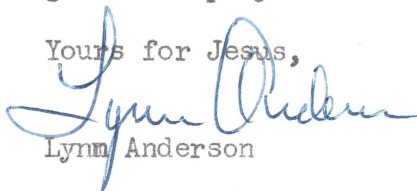 Yours for Jesus,
Lynn Anderson
Lynn Anderson